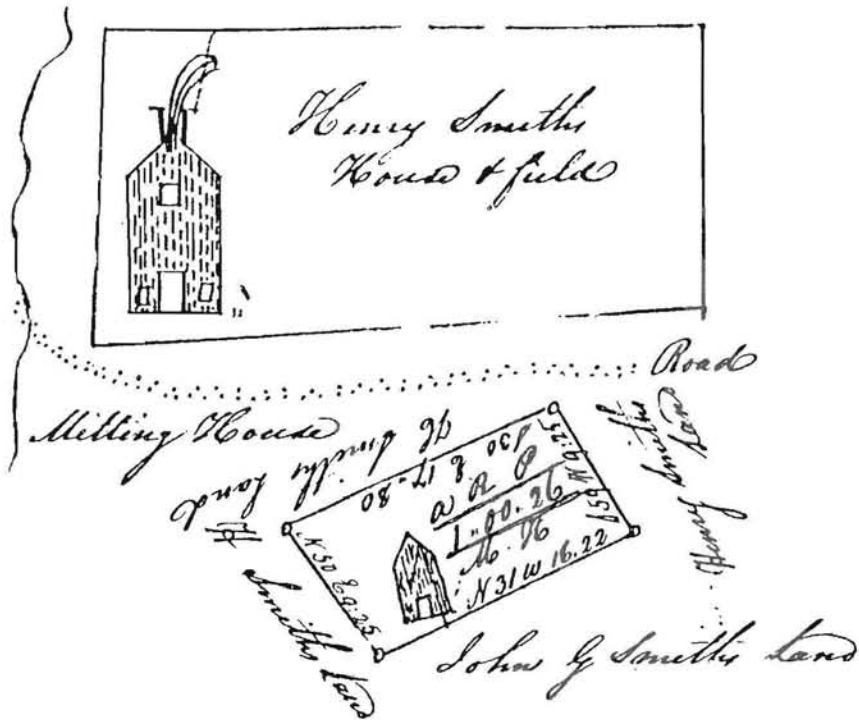 Henry Smiths
House & field
Road
Milting House
H Smiths Land
S 30 E 17.80
A R P
1 " 00 " 26
M. H
N 31 W 16.22
N 50 E 9.25
W 9.25
Henry Smiths Land
H
Smiths Land
John G Smiths Land